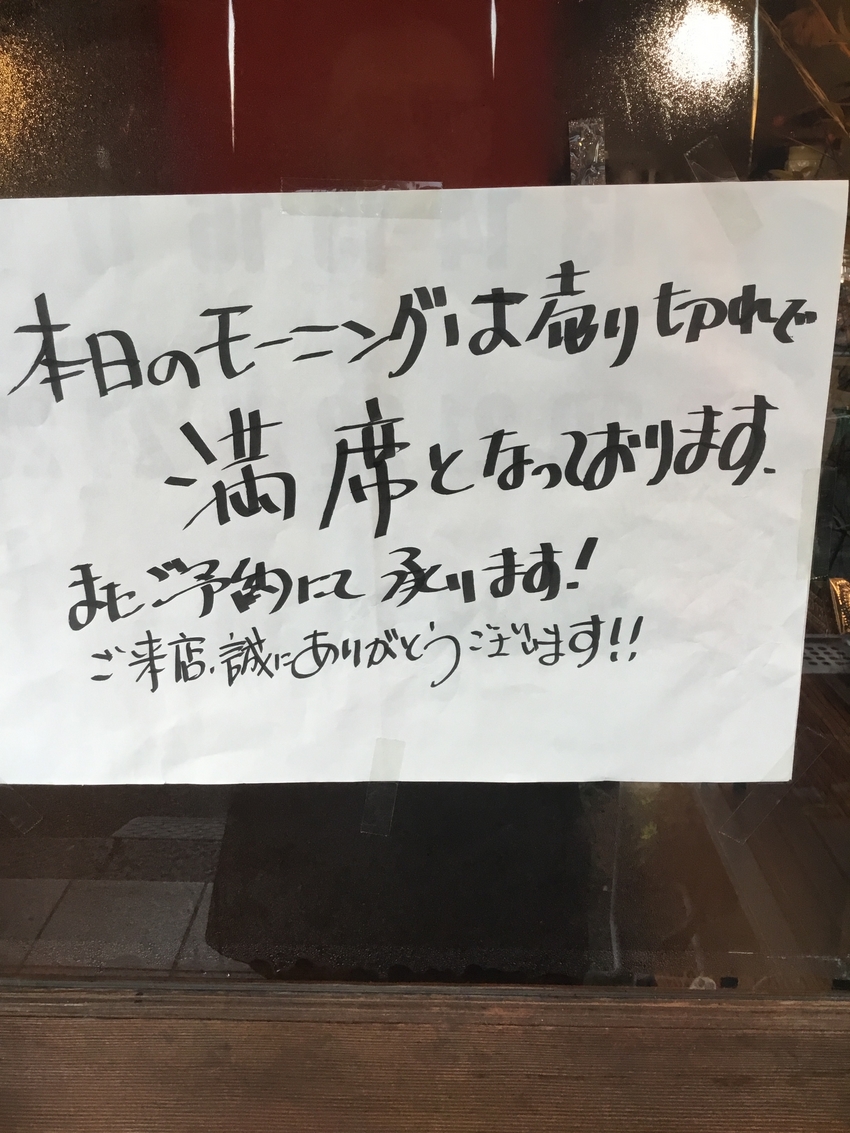 本日のモーニングは売り切れで
満席となっております.
またご予約にて承ります!
ご来店、誠にありがとうございます!!